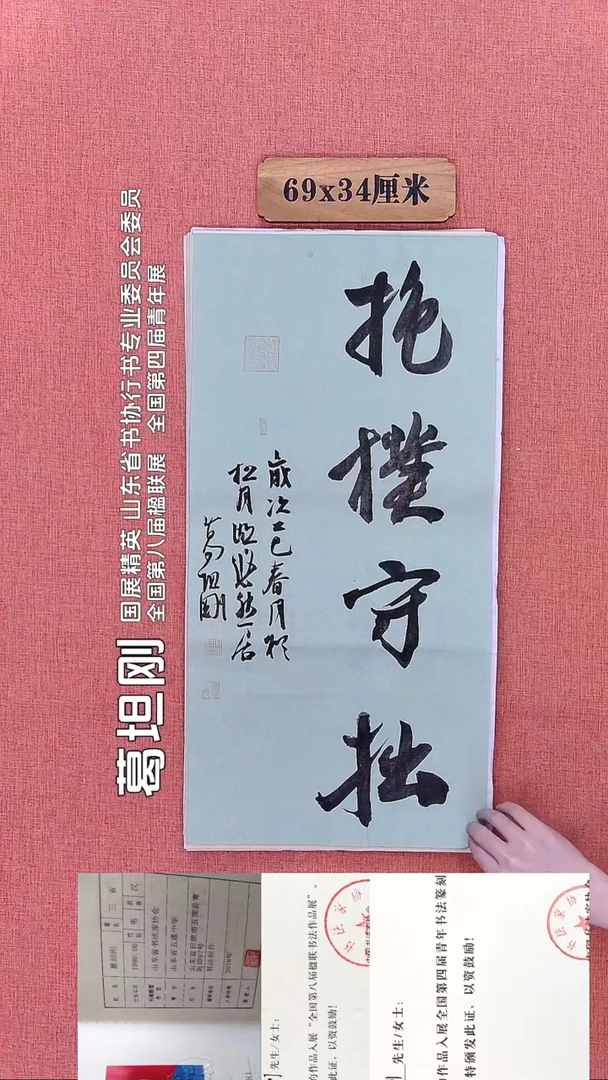 69x34厘米
抱樸守拙
歲次乙巳春月於
松月臨悠然居
葛坦剛
葛坦刚
国展精英 山东省书协行书专业委员会委员
全国第八届楹联展 全国第四届青年展
山东省书法家协会
先生/女士:
的作品入展“全国第八届楹联书法作品展”。
此证，以资鼓励!
先生/女士:
作品入展全国第四届青年书法篆刻
特颁发此证，以资鼓励!